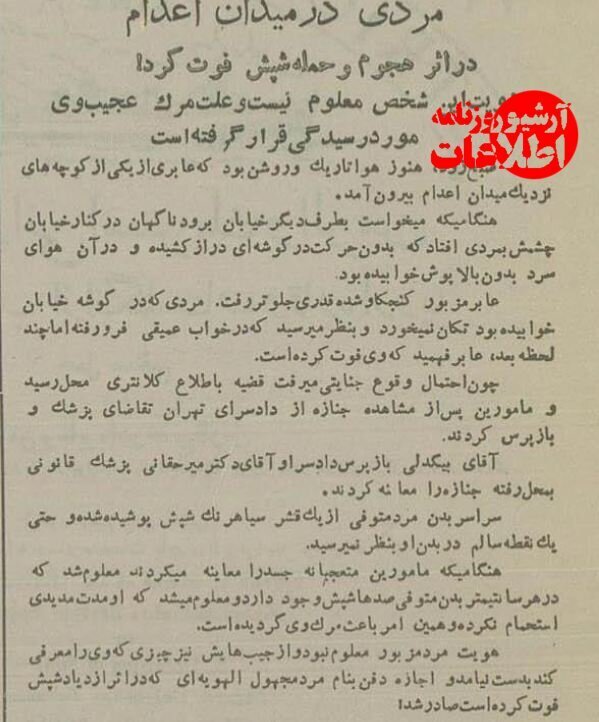 مردی در میدان اعدام
در اثر هجوم و حمله شپش فوت کرد!
هویت این شخص معلوم نیست و علت مرگ عجیب وی
مورد رسیدگی قرار گرفته است
آرشیو روزنامه
اطلاعات
صبح زود، هنوز هوا تاریک و روشن بود که عابری از یکی از کوچه‌های
نزدیک میدان اعدام بیرون آمد.
هنگامیکه میخواست بطرف دیگر خیابان برود ناگهان در کنار خیابان
چشمش بمردی افتاد که بدون حرکت در گوشه‌ای دراز کشیده و در آن هوای
سرد بدون بالاپوش خوابیده بود.
عابر مزبور کنجکاو شده قدری جلوتر رفت. مردی که در گوشه خیابان
خوابیده بود تکان نمیخورد و بنظر میرسید که در خواب عمیقی فرو رفته اما چند
لحظه بعد، عابر فهمید که وی فوت کرده است.
چون احتمال وقوع جنایتی میرفت قضیه باطلاع کلانتری محل رسید
و مامورین پس از مشاهده جنازه از دادسرای تهران تقاضای پزشک و
بازپرس کردند.
آقای بیگدلی بازپرس دادسرا و آقای دکتر میرحقانی پزشک قانونی
بمحل رفته جنازه را معاینه کردند.
سراسر بدن مرد متوفی از یک قشر سیاهرنگ شپش پوشیده شده و حتی
یک نقطه سالم در بدن او بنظر نمیرسید.
هنگامیکه مامورین متعجبانه جسد را معاینه میکردند معلوم شد که
در هر سانتیمتر بدن متوفی صدها شپش وجود دارد و معلوم میشد که او مدت مدیدی
استحمام نکرده و همین امر باعث مرگ وی گردیده است.
هویت مرد مزبور معلوم نبود و از جیب‌هایش نیز چیزی که وی را معرفی
کند بدست نیامد و اجازه دفن بنام مرد مجهول الهویه‌ای که در اثر ازدیاد شپش
فوت کرده است صادر شد!